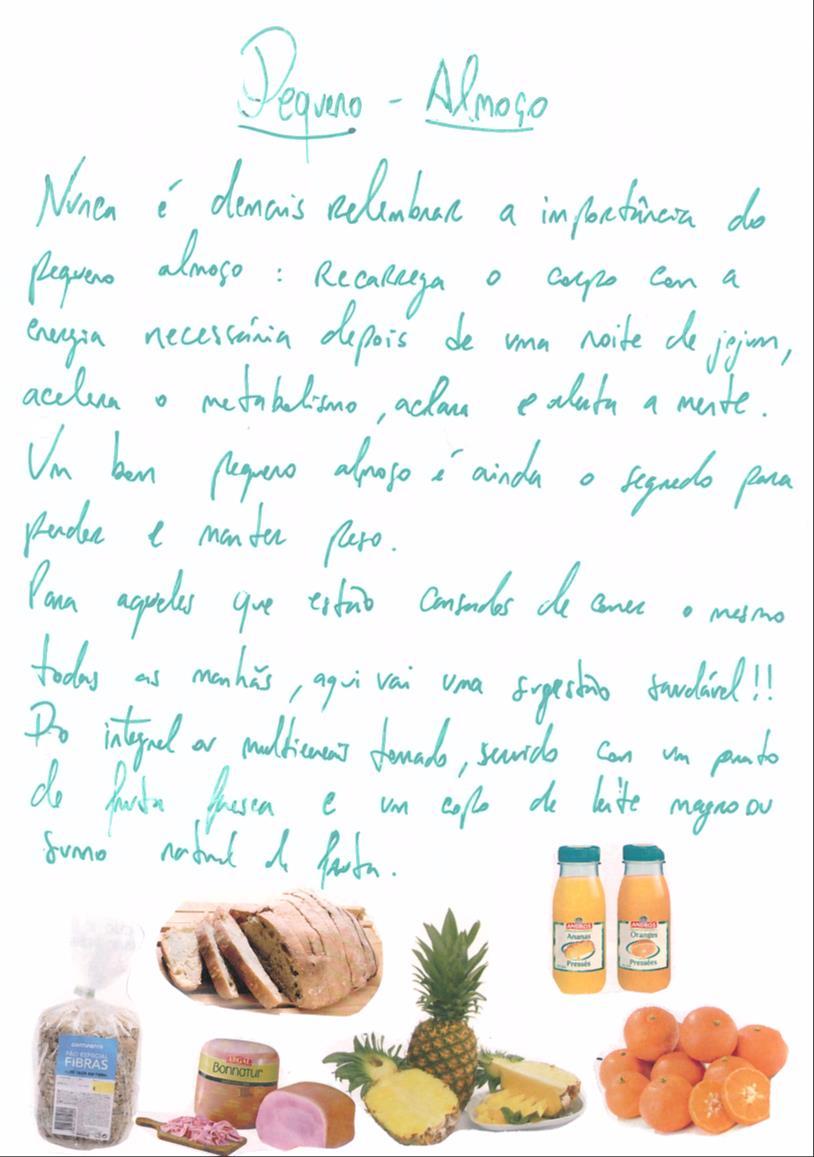 Pequeno - Almoço
Nunca é demais relembrar a importância do
pequeno almoço : Recarrega o corpo com a
energia necessária depois de uma noite de jejum,
acelera o metabolismo, aclara e alerta a mente.
Um bom pequeno almoço é ainda o segredo para
perder e manter peso.
Para aqueles que estão cansados de comer o mesmo
todas as manhãs, aqui vai uma sugestão saudável!!
Pão integral ou multicereais torrado, servido com um prato
de fruta fresca e um copo de leite magro ou
sumo natural de fruta.
ANDROS
Ananas
Pressés
ANDROS
Oranges
Pressées
continente
PÃO ESPECIAL
FIBRAS
Bonnatur